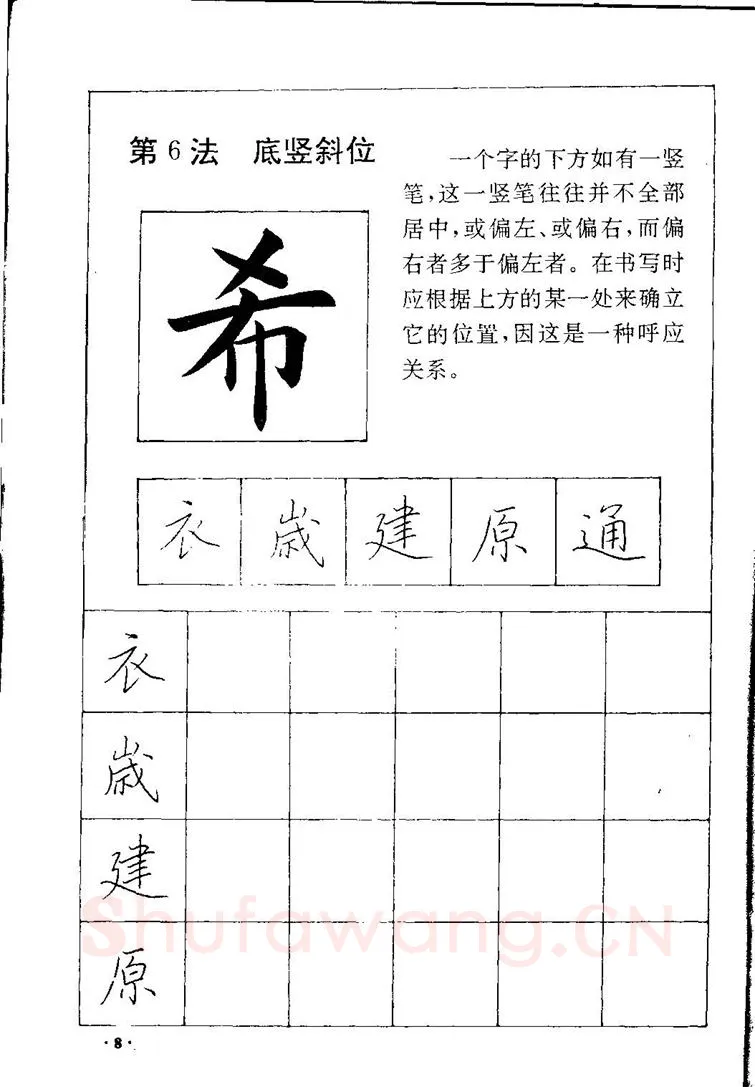 第6法 底竖斜位
一个字的下方如有一竖
笔，这一竖笔往往并不全部
居中，或偏左、或偏右，而偏
右者多于偏左者。在书写时
应根据上方的某一处来确立
它的位置，因这是一种呼应
关系。
希
衣 歳 建 原 通
衣
歳
建
原
Shufawang.CN
·8·